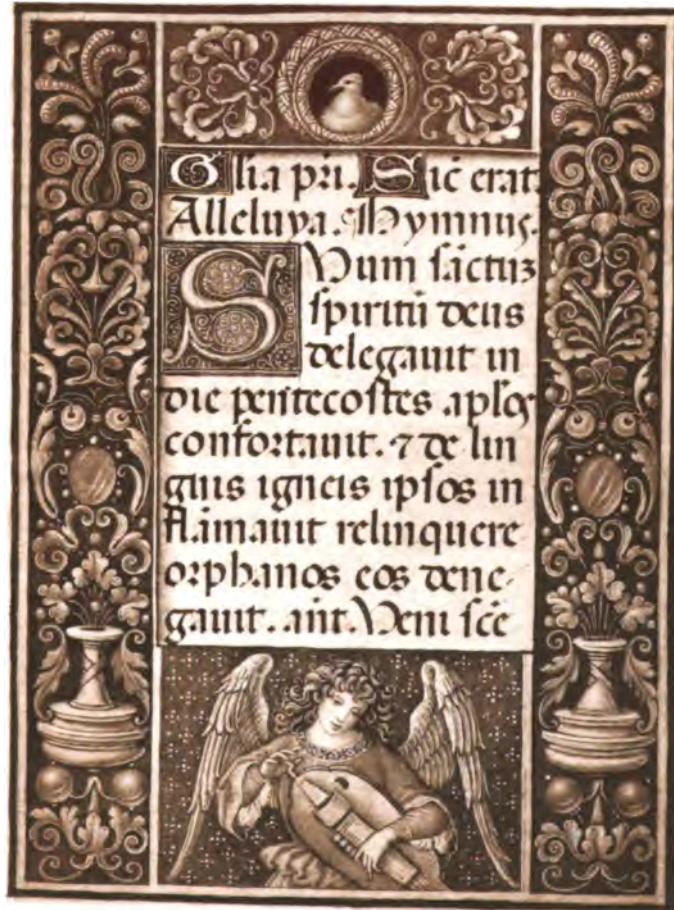 Glia pri. Sic erat.
Alleluya. Hymnus.
SUum sāctuȝ
spiritū deus
delegauit in
die pentecostes aplos
confortauit. ⁊ de lin
guis igneis ipsos in
flāmauit relinquere
orphanos eos dene-
gauit. añt. Veni sc̄e